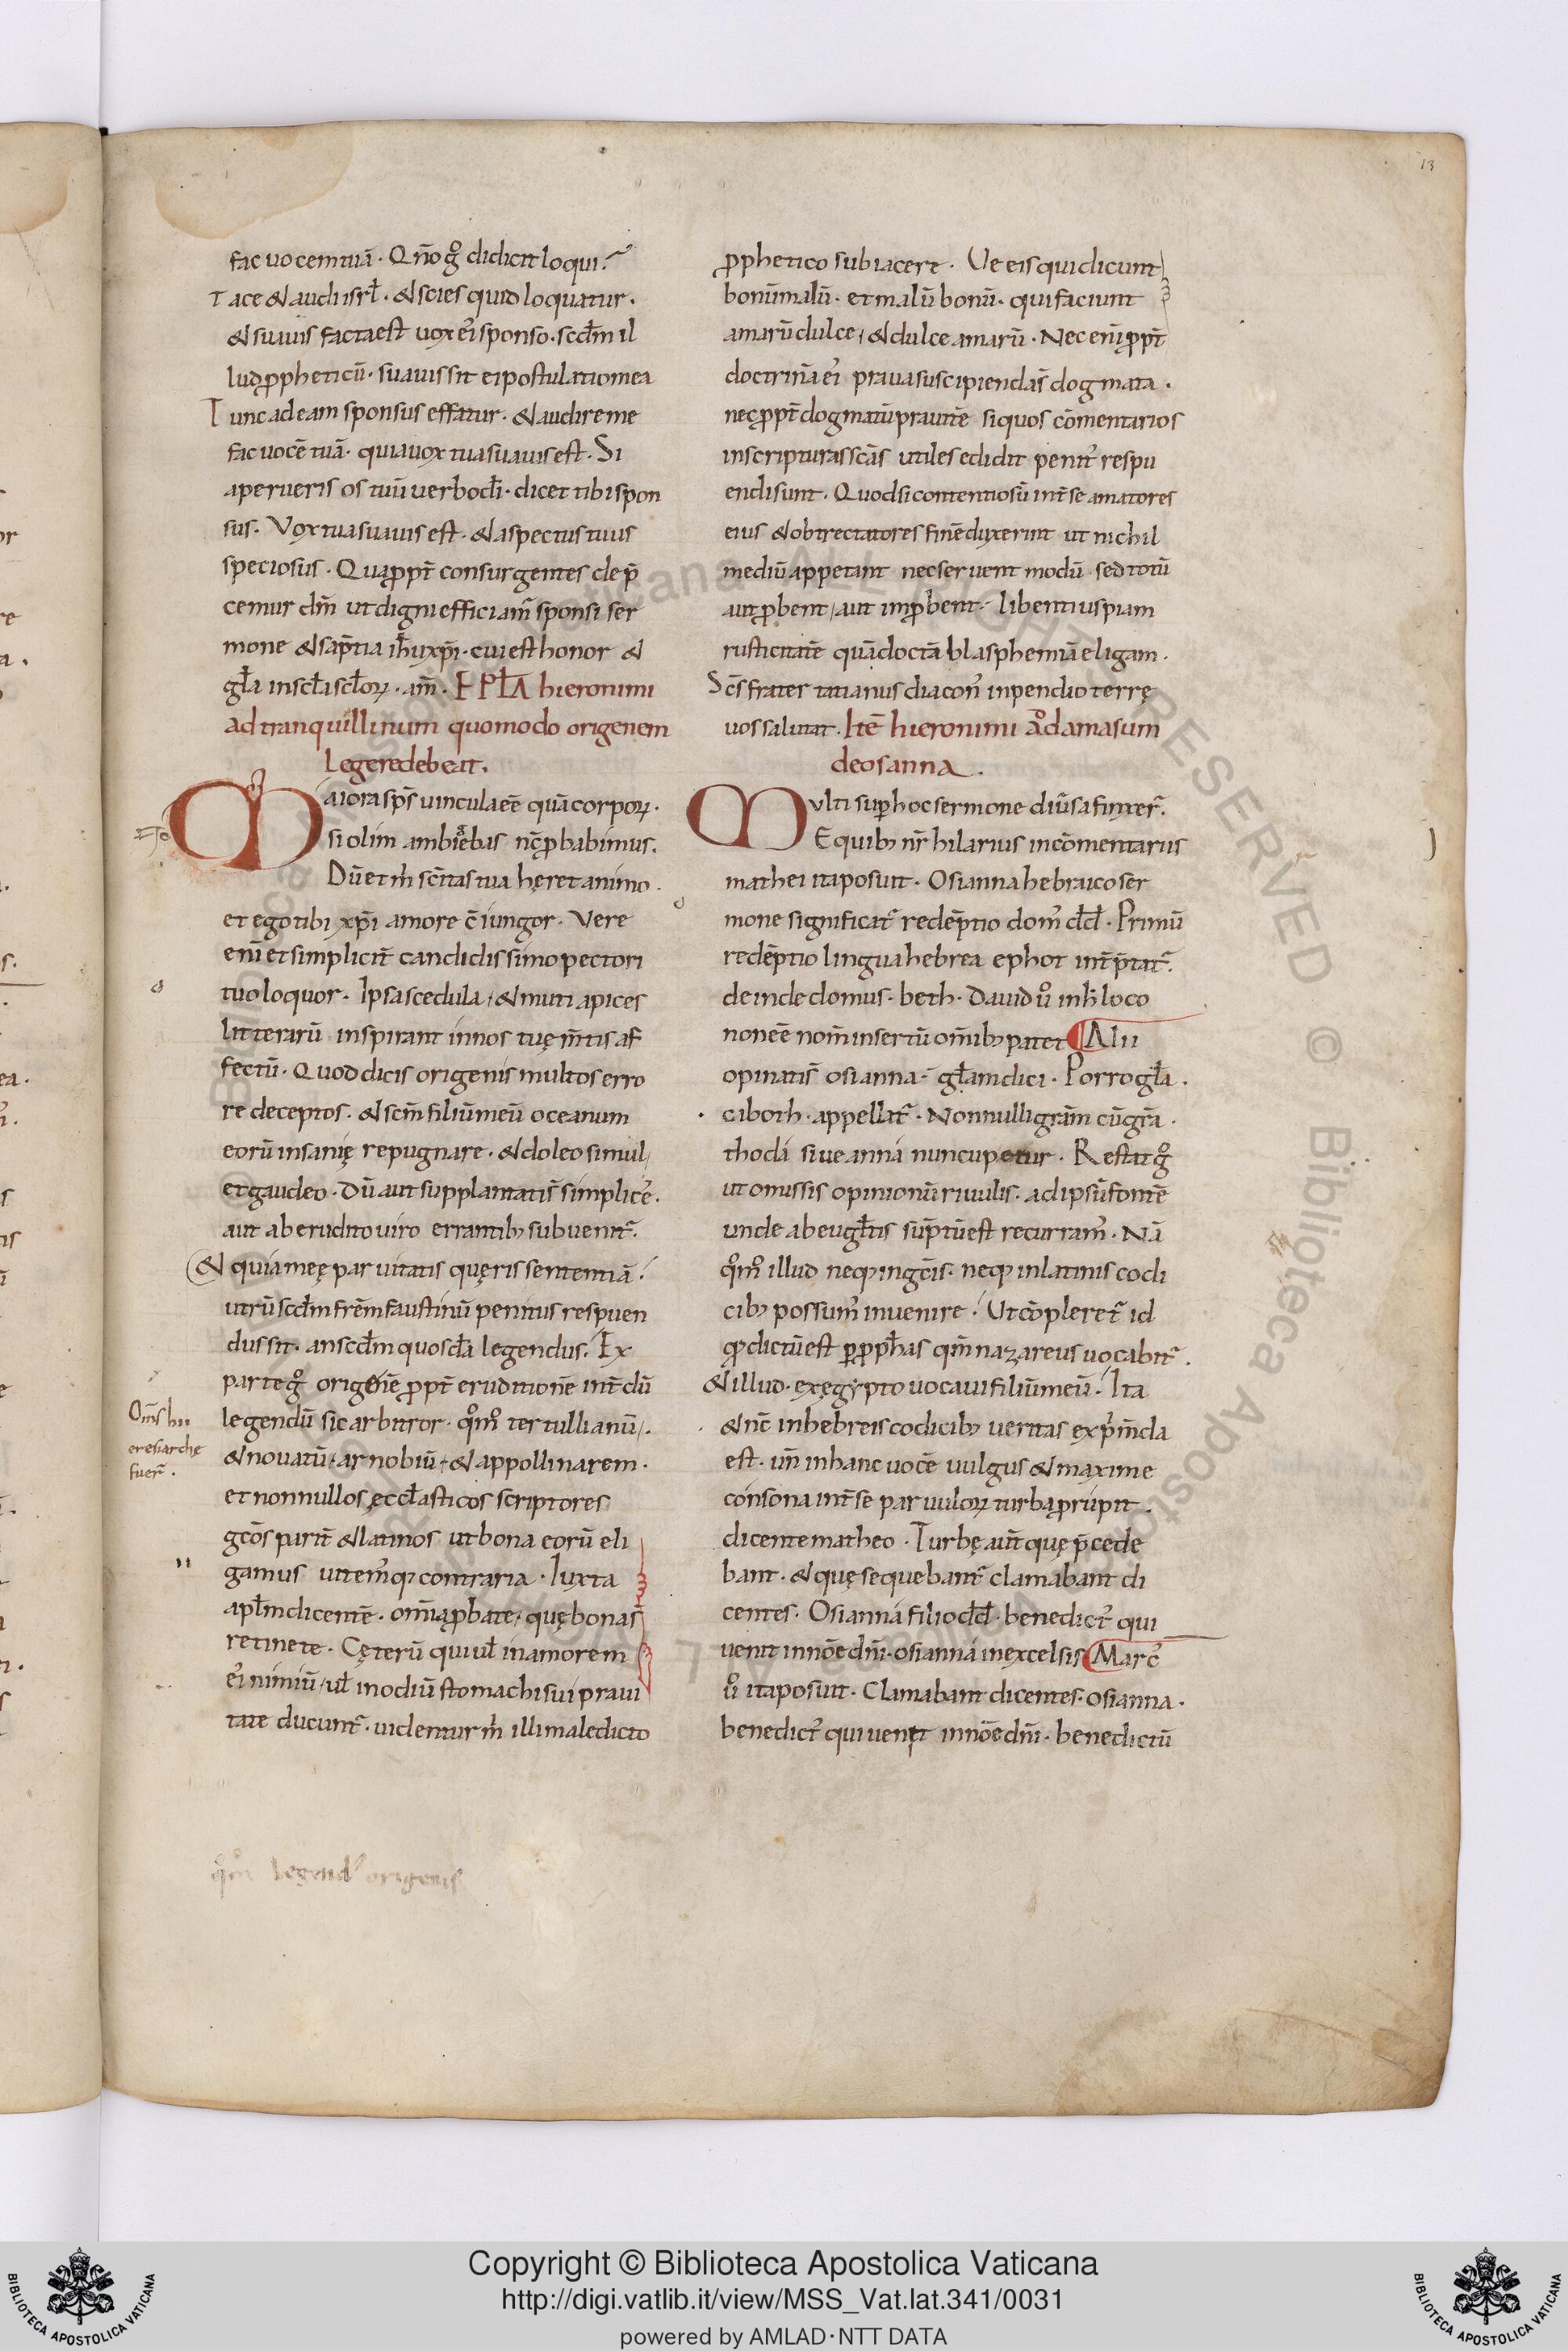 13
fac uocem tuā. Qño g̊ didicit loqui?
Tace & audi isrł. & scies quid loquatur.
& suauis facta est uox ei᾿ sponso. scdm̄ il
lud ꝓpheticū. suauis sit ei postulatio mea
Tunc ad eam sponsus effatur. & audire me
fac uocē tuā. quia uox tua suauis est. Si
aperueris os tuū uerbo dī. dicet tibi spon
sus. Vox tua suauis est. & aspectus tuus
speciosus. Quapp̄t consurgentes dep̄
cemur dm̄ ut digni efficiam᾿ sponsi ser
mone & sap̄tia ih̄u xp̄i. cui est honor &
gła in scła scłoꝝ. am̄. EPŁA hieronimi
ad tranquillinum quomodo origenem
Legere debeat.
Maiora sp̄s uincula eē quā corpoꝝ.
si olim ambiebas nc̄ ꝓbabimus.
Dū et m̄ sc̄itas tua hęret animo.
et ego tibi xp̄i amore c̄iungor. Vere
enī et simplicit̄ candidissimo pectori
tuo loquor. Ipsa scedula, & muti apices
litterarū inspirant in nos tuę m̄tis af
fectū. Quod dicis origenis multos erro
re deceptos. & scm̄ filiū meū oceanum
eorū insanię repugnare. & doleo simul,
et gaudeo. Dū aut supplantati s̄ simplices.
aut ab erudito uiro errantibꝫ subuenit᾿.
& quia meę paruitatis quęris sententiā.
utrū scdm̄ frēm faustinū penitus respuen
dus sit. an scdm̄ quosdā legendus. Ex
parte g̊ origenē ꝓp̄t eruditionē int̄dū
Om̄s hii
eresiarchę
fuer᾿.
legendū sic arbitror. q̊m̊ tertullianū.
& nouatū. arnobiū. & appollinarem.
et nonnullos ęccłasticos scriptores
gc̄os parit̄ & latinos ut bona eorū eli
gamus uitem᾿qꝫ contraria. Iuxta
apłm dicentē. om̄ia ꝓbate, quę bona s̄
retinete. Cęterū qui uł in amorem
ei᾿ nimiū, uł in odiū stomachi sui praui
tate ducunt᾿. uidentur m̄ illi maledicto
q̊m̊ legend᾿ origenis
ꝓphetico subiacere. Ve eis qui dicunt
bonū malū. et malū bonū. qui faciunt
amarū dulce, & dulce amarū. Nec enī ꝓp̄t
doctrinā ei᾿ praua suscipienda s̄ dogmata.
nec ꝓp̄t dogmatū prauitē si quos cōmentarios
in scripturas scās utiles edidit penit᾿ respu
endi sunt. Quod si contentiosū int̄ se amatores
eius & obtrectatores finē duxerint ut nichil
mediū appetant nec seruent modū sed totū
aut ꝓbent, aut imꝓbent. libentius piam
rusticitatē quā doctā blasphemiā eligam.
Scs̄ frater tatianus diacon᾿ inpendio terrę
uos salutat. Itē hieronimi ad damasum
de osanna.
Multi sup̱ hoc sermone diu͛sa finxer᾿.
E quibꝫ nr̄ hilarius in cōmentariis
mathei ita posuit. Osianna hebraico ser
mone significat᾿ redēptio dom᾿ dd. Primū
redēptio lingua hebrea ephot int̄p̄tat᾿.
deinde domus. beth. Dauid ů in h̄ loco
non eē nom̄ insertū om̄ibꝫ patet Alii
opinati s̄ osianna. głam dici. Porro gła.
ciboth. appellat᾿. Nonnulli grām cū grā.
thoda siue anna nuncupetur. Restat g̊
ut omissis opinionū riuulis. ad ipsū fontē
unde ab eugłtis sūptū est recurram᾿. Nā
q̊m̊ illud neqꝫ in gc̄is. neqꝫ in latinis codi
cibꝫ possum᾿ inuenire. Ut cōpleret᾿ id
qꝫ dictū est p̱ ꝓphās qm̄ nazareus uocabit᾿.
& illud. ex ęgypto uocaui filiū meū. Ita
& nc̄ in hebreis codicibꝫ ueritas exp̄m̄da
est. un̄ in hanc uocē uulgus & maxime
consona int̄ se paruuloꝝ turba ꝓrupit.
dicente matheo. Turbę aut̄ quę p̄cede
bant. & quę sequebant᾿ clamabant di
centes. Osianna filio dd. benedict᾿ qui
uenit in nōe dn̄i. osianna in excelsis Marc᾿
ů ita posuit. Clamabant dicentes. osianna.
benedict᾿ qui uenit in nōe dn̄i. benedictū
Copyright © Biblioteca Apostolica Vaticana
http://digi.vatlib.it/view/MSS_Vat.lat.341/0031
powered by AMLAD·NTT DATA
BIBLIOTECA APOSTOLICA VATICANA
BIBLIOTECA APOSTOLICA VATICANA